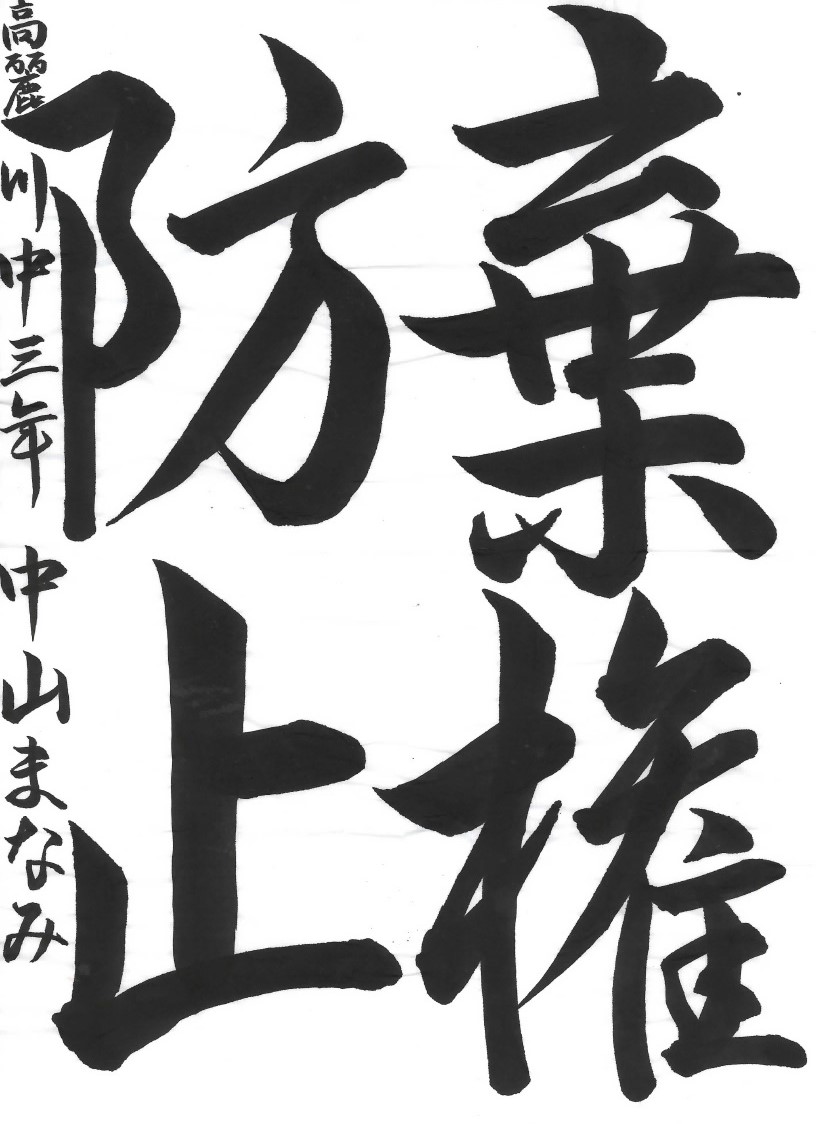 棄権
防止
高麗川中三年 中山まなみ